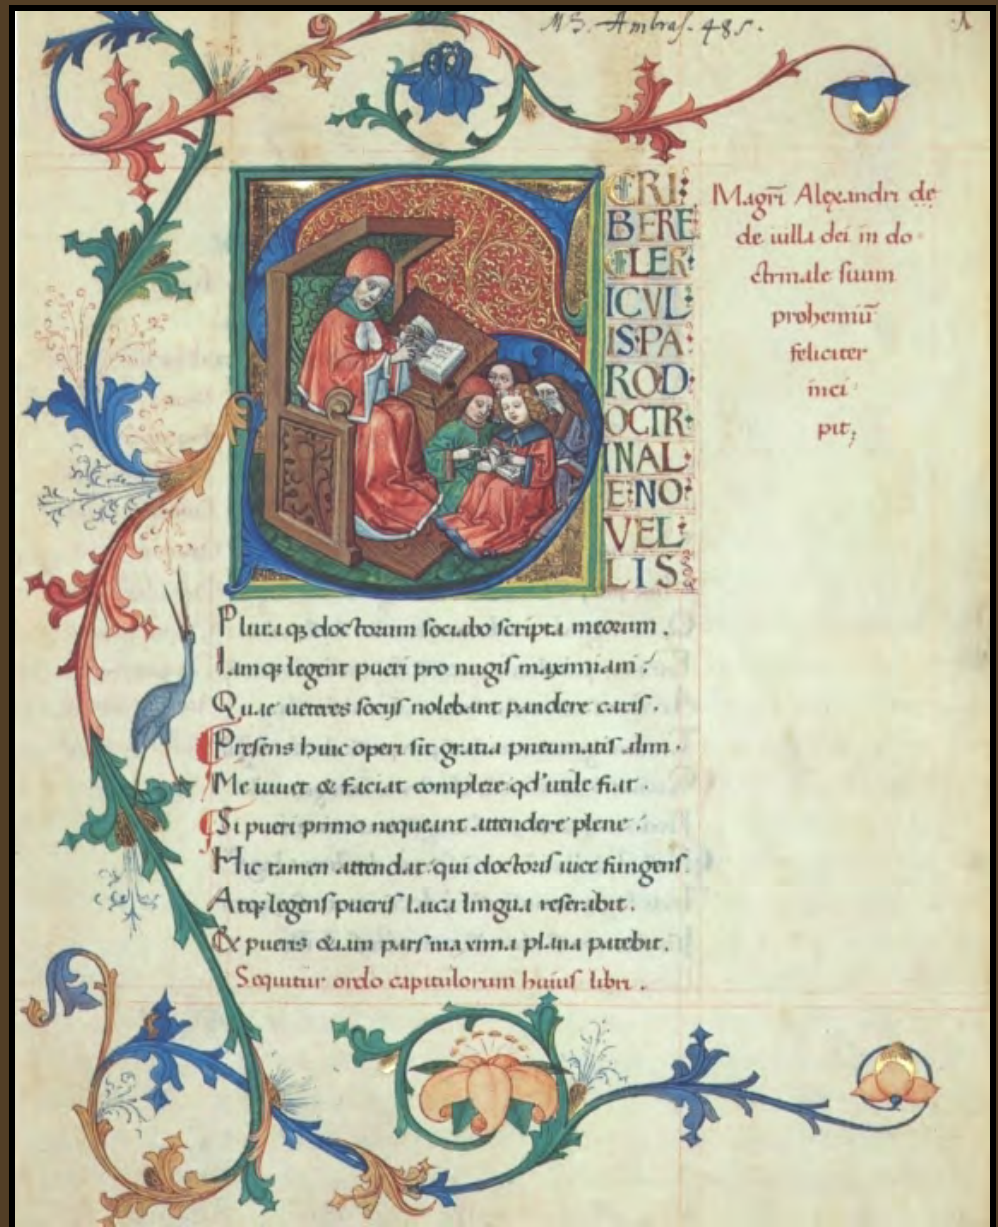 MS. Ambraſ. 485.
SCRI:
BERE
CLER:
ICVL:
IS:PA:
ROD:
OCTR:
INAL:
E:NO:
VEL:
LIS:
Magrī Alexandri de
de uilla dei in do·
ctrinale ſuum
prohemiū
feliciter
inci·
pit;
Pluraqꝫ doctorum ſociabo ſcripta meorum.
Iamqꝫ legent pueri pro nugiſ maximiani:
Quae ueteres ſocijſ nolebant pandere cariſ.
Preſens huic operi ſit gratia pneumatiſ almi.
Me iuuet & faciat complere qd' utile fiat.
Si pueri primo nequeant attendere plene:
Hic tamen attendat: qui doctoriſ uice fungenſ.
Atqꝫ legenſ pueriſ laica lingua reſerabit.
Et pueris etiam parſ maxima plana patebit.
Sequitur ordo capitulorum huiuſ libri.